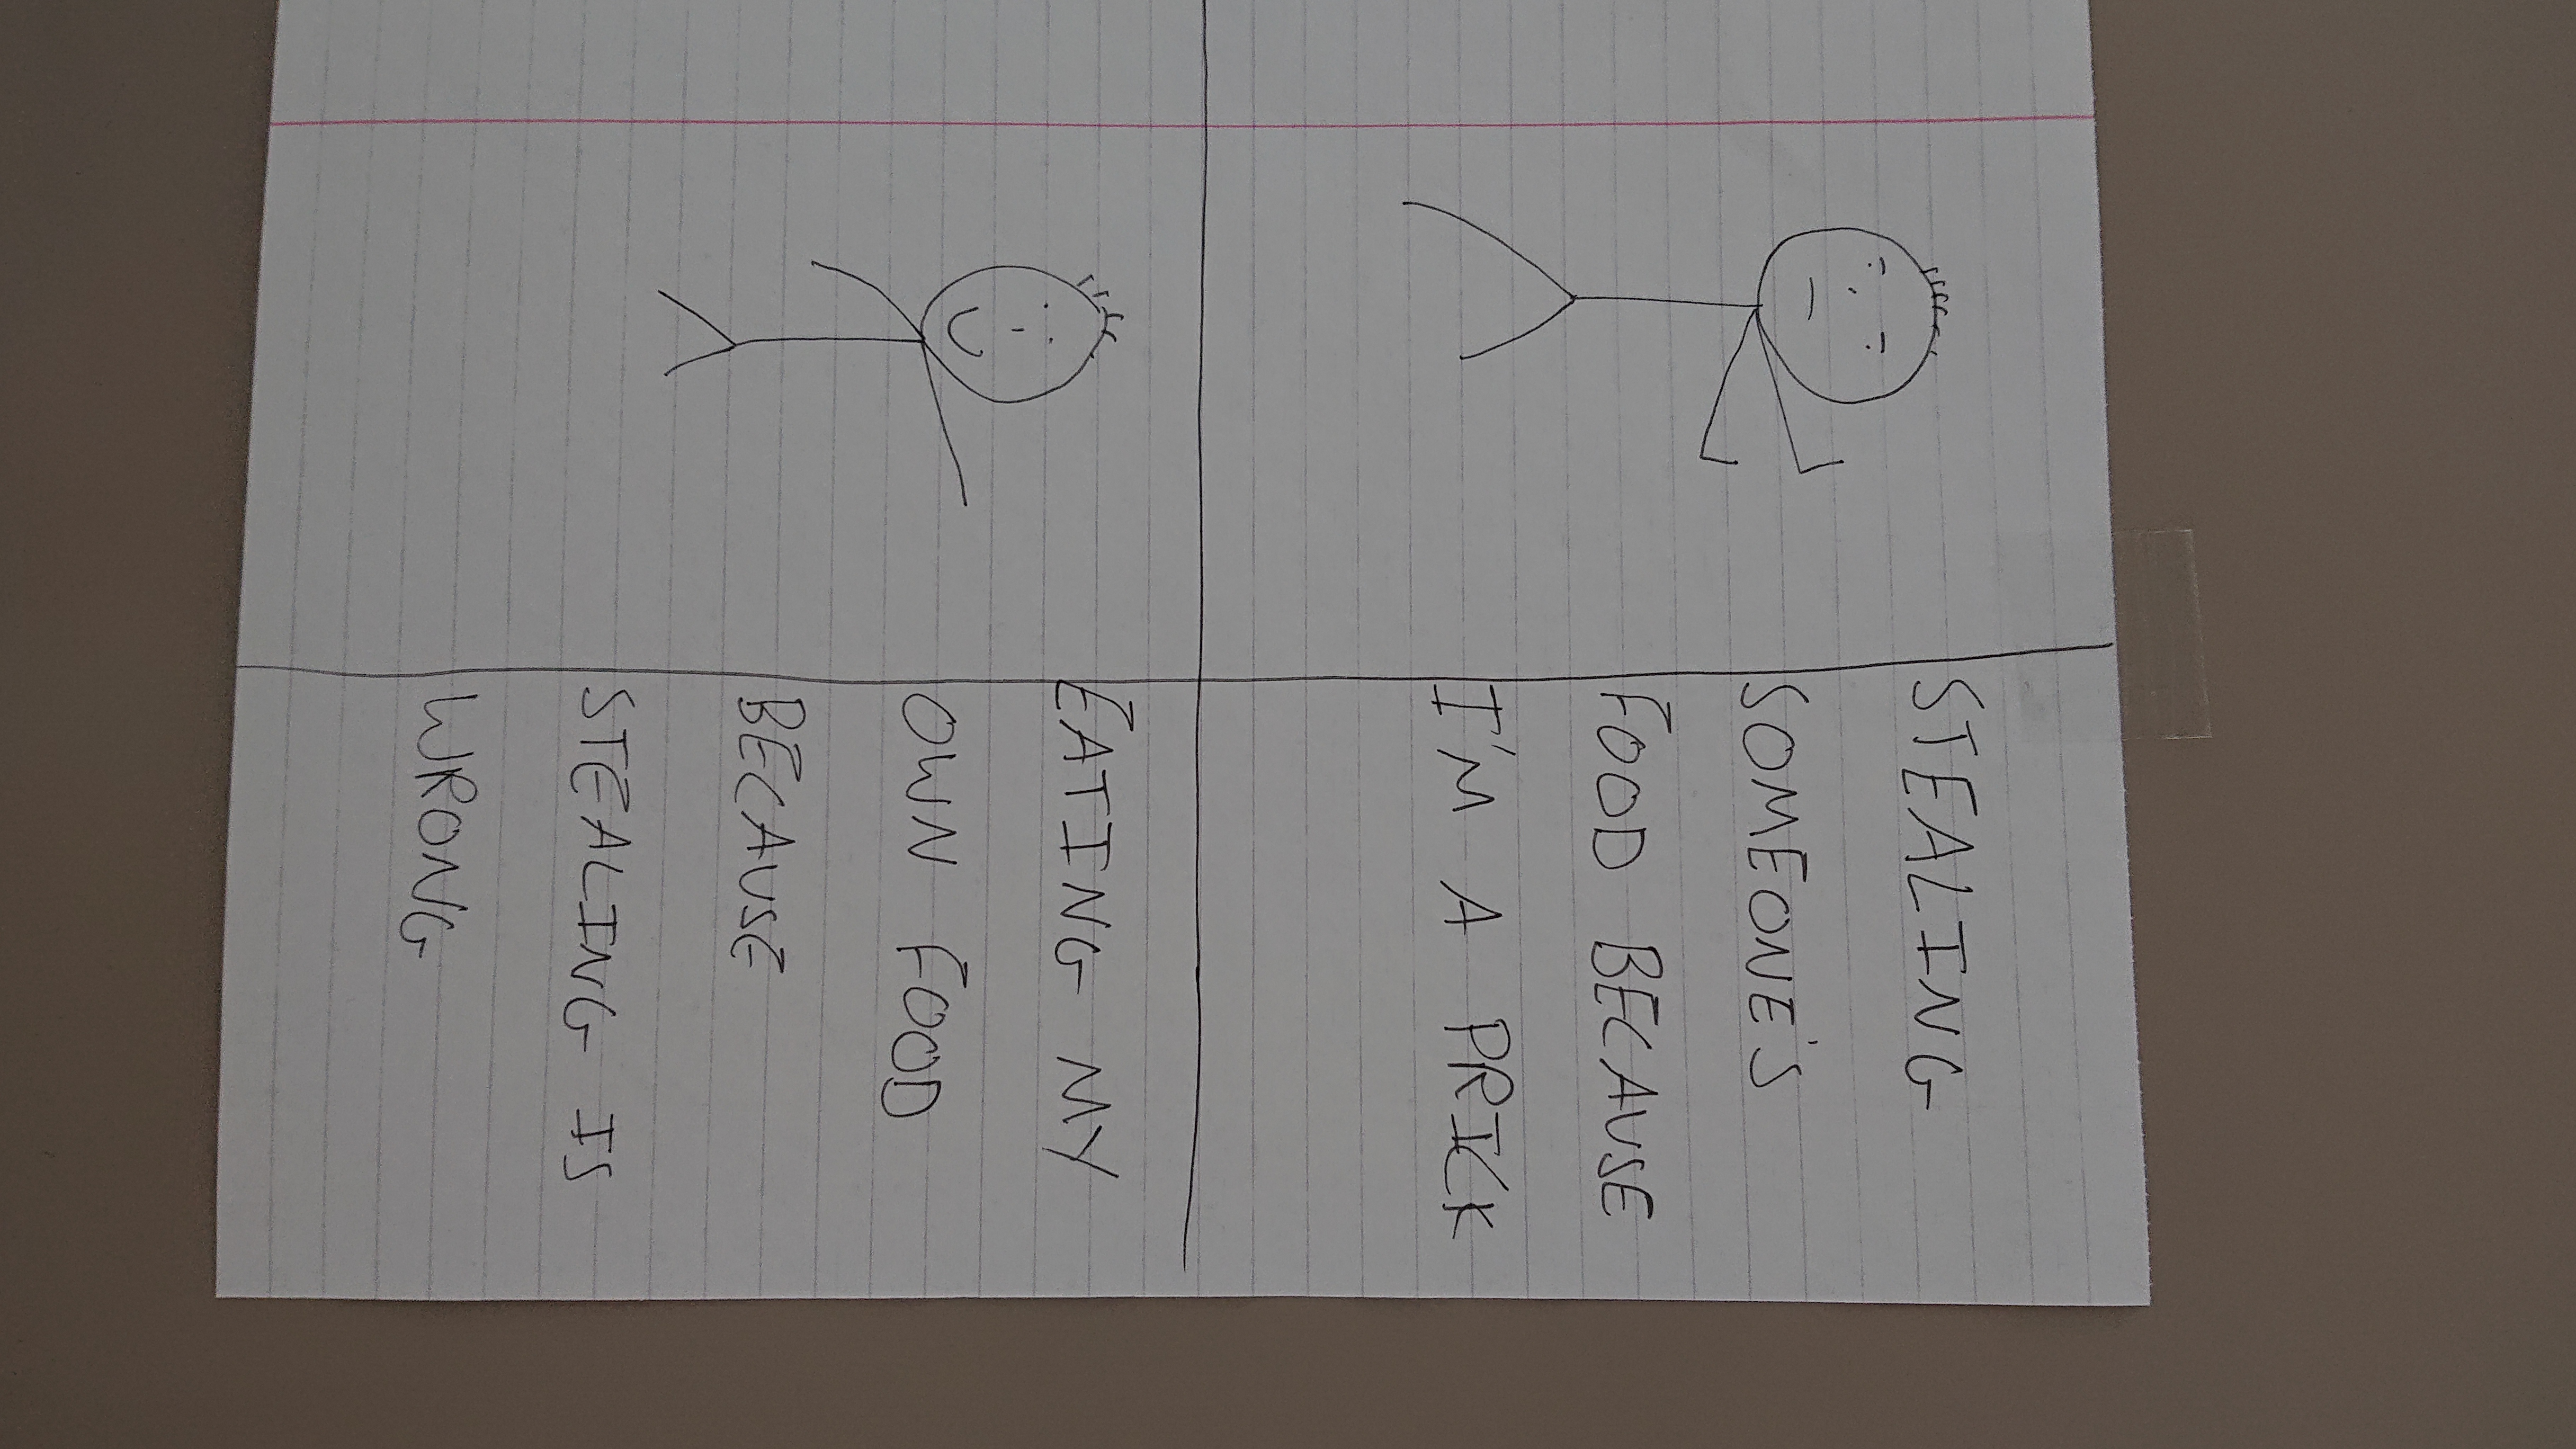 STEALING
SOMEONE'S
FOOD BECAUSE
I'M A PRICK
EATING MY
OWN FOOD
BECAUSE
STEALING IS
WRONG